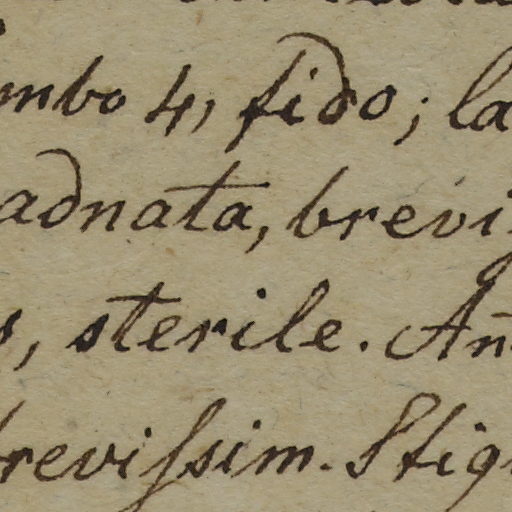 mbo 4, fido; la
adnata, brevi
s, sterile. An
brevissim. Stig